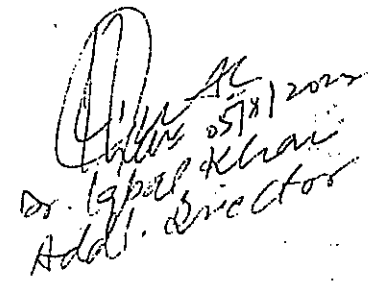 05/8/2022
Dr. Iqbal Khan
Addl. Director